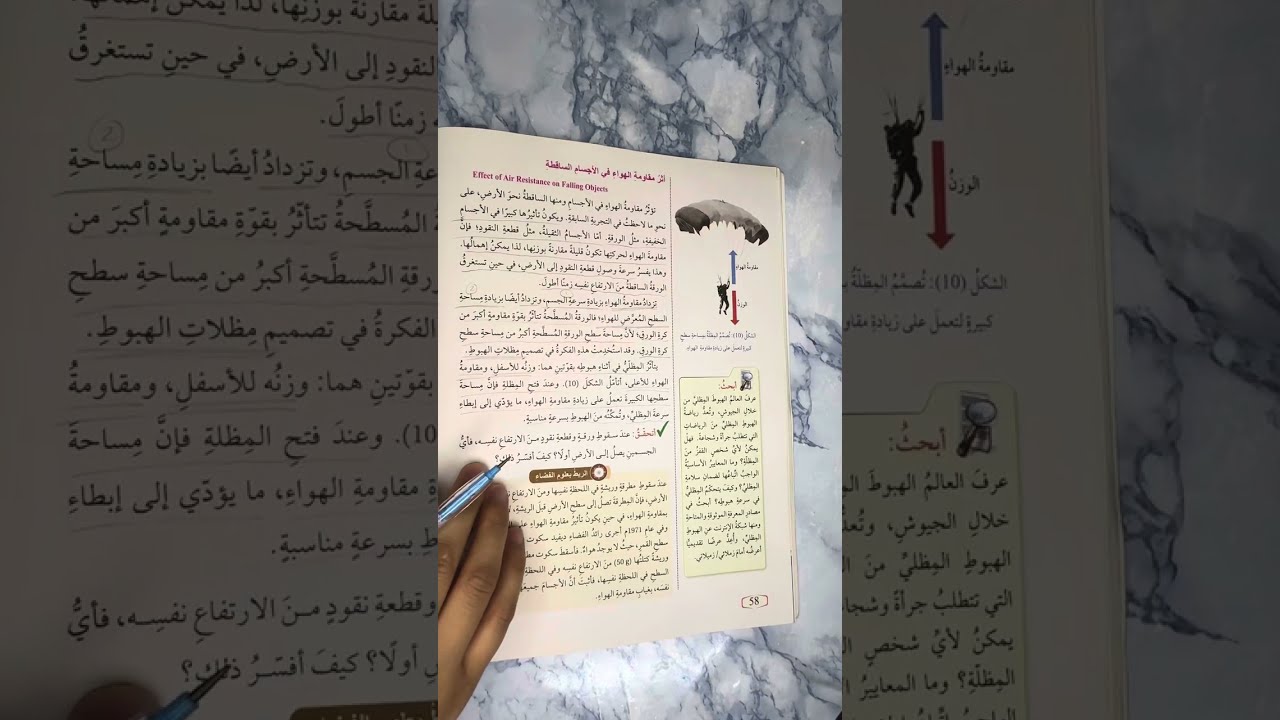 أثرُ مقاومة الهواء في الأجسام الساقطة
Effect of Air Resistance on Falling Objects
تؤثّرُ مقاومةُ الهواءِ في الأجسامِ ومنها الساقطةُ نحوَ الأرضِ، على
نحوِ ما لاحظتُ في التجربةِ السابقةِ. ويكونُ تأثيرُها كبيرًا في الأجسامِ
الخفيفةِ، مثلُ الورقةِ. أمّا الأجسامُ الثقيلةُ، مثلُ قطعةِ النقودِ؛ فإنَّ
مقاومةَ الهواءِ لحركتِها تكونُ قليلةً مقارنةً بوزنِها، لذا يمكنُ إهمالُها.
وهذا يفسرُ سرعةَ وصولِ قطعةِ النقودِ إلى الأرضِ، في حينِ تستغرقُ
الورقةُ الساقطةُ منَ الارتفاعِ نفسِه زمنًا أطولَ.
تزدادُ مقاومةُ الهواءِ بزيادةِ سرعةِ الجسمِ، وتزدادُ أيضًا بزيادةِ مِساحةِ
السطحِ المُعرَّضِ للهواءِ؛ فالورقةُ المُسطَّحةُ تتأثّرُ بقوّةِ مقاومةٍ أكبرَ من
كرةِ الورقِ؛ لأنَّ مِساحةَ سطحِ الورقةِ المُسطَّحةِ أكبرُ من مِساحةِ سطحِ
كرةِ الورقِ. وقد استُخدِمت هذهِ الفكرةُ في تصميمِ مِظلاتِ الهبوطِ.
يتأثّرُ المِظليُّ في أثناءِ هبوطِه بقوّتينِ هما: وزنُه للأسفلِ، ومقاومةُ
الهواءِ للأعلى، أتأمّلُ الشكلَ (10). وعندَ فتحِ المِظلةِ فإنَّ مِساحةَ
سطحِها الكبيرةَ تعملُ على زيادةِ مقاومةِ الهواءِ، ما يؤدّي إلى إبطاءِ
سرعةِ المِظليِّ، وتُمكّنُه منَ الهبوطِ بسرعةٍ مناسبةٍ.
أتحقّقُ: عندَ سقوطِ ورقةٍ وقطعةِ نقودٍ منَ الارتفاعِ نفسِه، فأيُّ
الجسمينِ يصلُ إلى الأرضِ أولًا؟ كيفَ أفسّرُ ذلك؟
الربط بعلوم الفضاء
عندَ سقوطِ مطرقةٍ وريشةٍ في اللحظةِ نفسِها ومنَ الارتفاعِ
الأرضِ، فإنَّ المِطرقةَ تصلُ إلى سطحِ الأرضِ قبلَ الريشةِ،
بمقاومةِ الهواءِ، في حينِ يكونُ تأثيرُ مقاومةِ الهواءِ على
وفي عام 1971م أجرى رائدُ الفضاءِ ديفيد سكوت
سطحِ القمرِ، حيثُ لا يوجدُ هواءٌ. فأسقطَ سكوت
وريشةً كتلتُها (50 g) منَ الارتفاعِ نفسِه وفي اللحظةِ
السطحِ في اللحظةِ نفسِها، فأثبتَ أنَّ الأجسامَ جميعَها
نفسَه، بغيابِ مقاومةِ الهواءِ.
مقاومةُ الهواءِ
الوزنُ
الشكلُ (10): تُصمَّمُ المِظلّةُ بمِساحةِ سطحٍ
كبيرةٍ لتعملَ على زيادةِ مقاومةِ الهواءِ.
أبحثُ:
عرفَ العالمُ الهبوطَ المِظليَّ من
خلالِ الجيوشِ، وتُعدُّ رياضةُ
الهبوطِ المِظليِّ منَ الرياضاتِ
التي تتطلبُ جرأةً وشجاعةً. فهل
يمكنُ لأيِّ شخصٍ القفزُ منَ
المِظلّةِ؟ وما المعاييرُ الأساسيةُ
الواجبُ اتّباعُها لضمانِ سلامةِ
المِظليِّ؟ وكيفَ يتحكّمُ المِظليُّ
في سرعةِ هبوطِه؟ أبحثُ في
مصادرِ المعرفةِ الموثوقةِ والمتاحةِ
ومنها شبكةُ الإنترنت عنِ الهبوطِ
المِظليِّ، وأُعِدُّ عرضًا تقديميًّا
أعرضُه أمامَ زملائي/ زميلاتي.
58